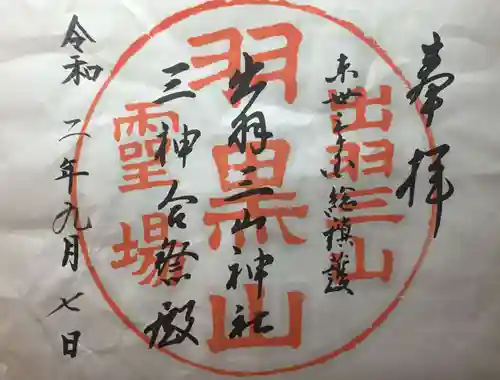 奉拝
出羽三山
未世之
総鎮護
羽黒山
出羽三山神社
三神合祭殿
霊場
令和二年九月七日